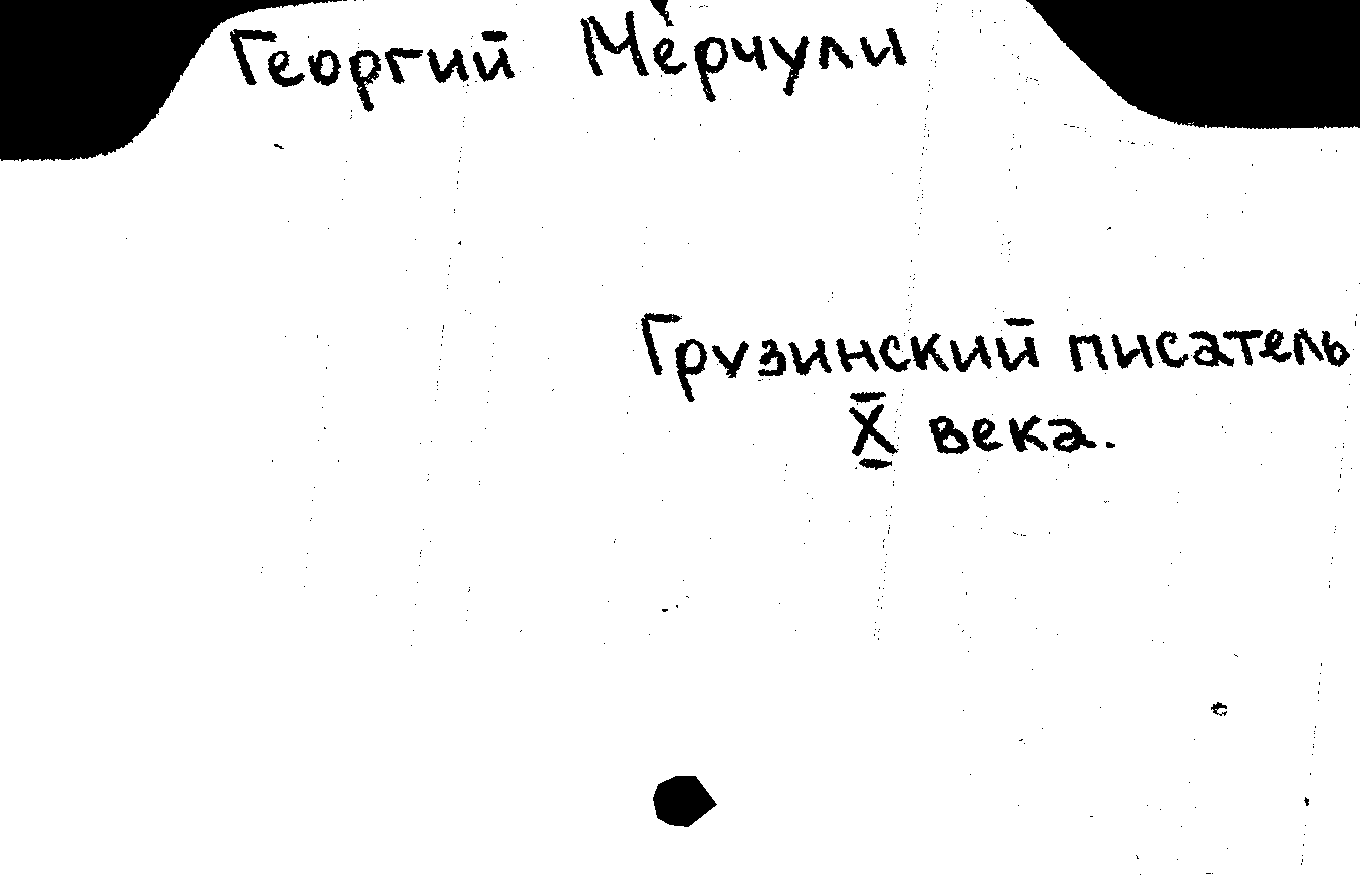 Георгий Мерчули
Грузинский писатель
X века.